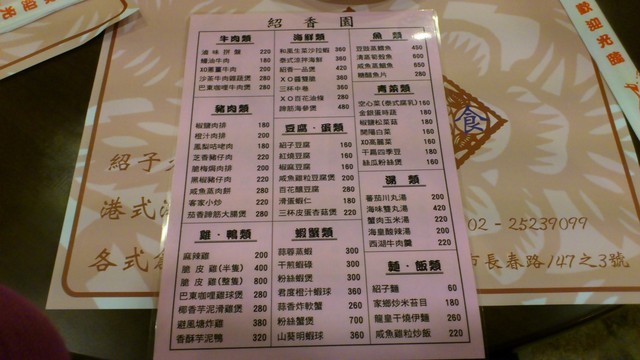 紹香園
牛肉類
滷味拼盤 220
蠔油牛肉 180
XO蔥薑牛肉 200
沙茶牛肉雞蔬煲 280
巴東咖哩牛肉煲 280
豬肉類
椒鹽肉排 180
橙汁肉排 180
鳳梨咕咾肉 180
芝香豬仔肉 220
脆梅腐肉排 180
黑椒豬仔肉 220
咸魚蒸肉餅 280
客家小炒 220
茄香蹄筋大腸煲 280
雞・鴨類
麻辣雞 200
脆皮雞(半隻) 400
脆皮雞(整隻) 800
巴東咖哩雞球煲 280
椰香芋泥滑雞煲 280
避風塘炸雞 380
香酥芋泥鴨 320
海鮮類
和風生菜沙拉蝦 360
泰式涼拌海鮮 360
紹香一品煲 420
XO醬雙脆 360
三杯中卷 360
XO百花油條 280
蹄筋海參煲 480
豆腐・蛋類
紹子豆腐 160
紅燒豆腐 160
椒麻豆腐 160
咸魚雞粒豆腐煲 220
百花釀豆腐 280
滑蛋蝦仁 180
三杯皮蛋杏菇煲 220
蝦蟹類
蒜蓉蒸蝦 340
干煎蝦碌 300
粉絲蝦煲 360
君度橙汁蝦球 360
蒜香炸軟蟹 260
粉絲蟹煲 700
山葵明蝦球 360
魚類
豆豉蒸鱈魚 450
清蒸筍殼魚 600
咸魚蒸鱈魚 650
糖醋魚片 280
青菜類
空心菜(泰式腐乳) 160
金銀蛋時蔬 160
椒鹽松菜菇 160
開陽白菜 160
XO高麗菜 160
干扁四季豆 180
絲瓜粉絲煲 160
湯類
蕃茄川丸湯 200
海味雙丸湯 200
蟹肉玉米湯 220
海皇酸辣湯 200
西湖牛肉羹 220
麵・飯類
紹子麵 60
家鄉炒米苔目 180
龍皇干燒伊麵 260
咸魚雞粒炒飯 220
歡迎光臨
食
紹子
港式
各式
02-25239099
市長春路147之3號